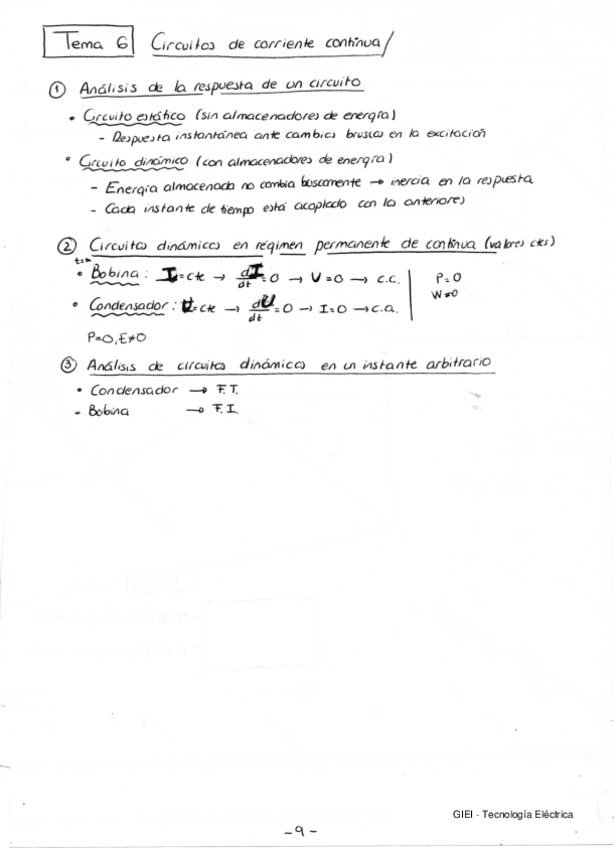 Tema 6 Circuitos de corriente continua/
① Análisis de la respuesta de un circuito
• Circuito estático (sin almacenadores de energía)
- Respuesta instantánea ante cambios bruscos en la excitación
• Circuito dinámico (con almacenadores de energía)
- Energía almacenada no cambia buscamente → inercia en la respuesta
- Cada instante de tiempo está acoplado con la anteriores
② Circuitos dinámicos en régimen permanente de continua (valores ctes)
• Bobina: I=cte → dI/dt=0 → U=0 → c.c. P=0
W≠0
• Condensador: U=cte → dU/dt=0 → I=0 → c.a.
P=0, E≠0
③ Análisis de circuitos dinámicos en un instante arbitrario
• Condensador → F.T.
- Bobina → F.I.
GIEI - Tecnología Eléctrica
-9-